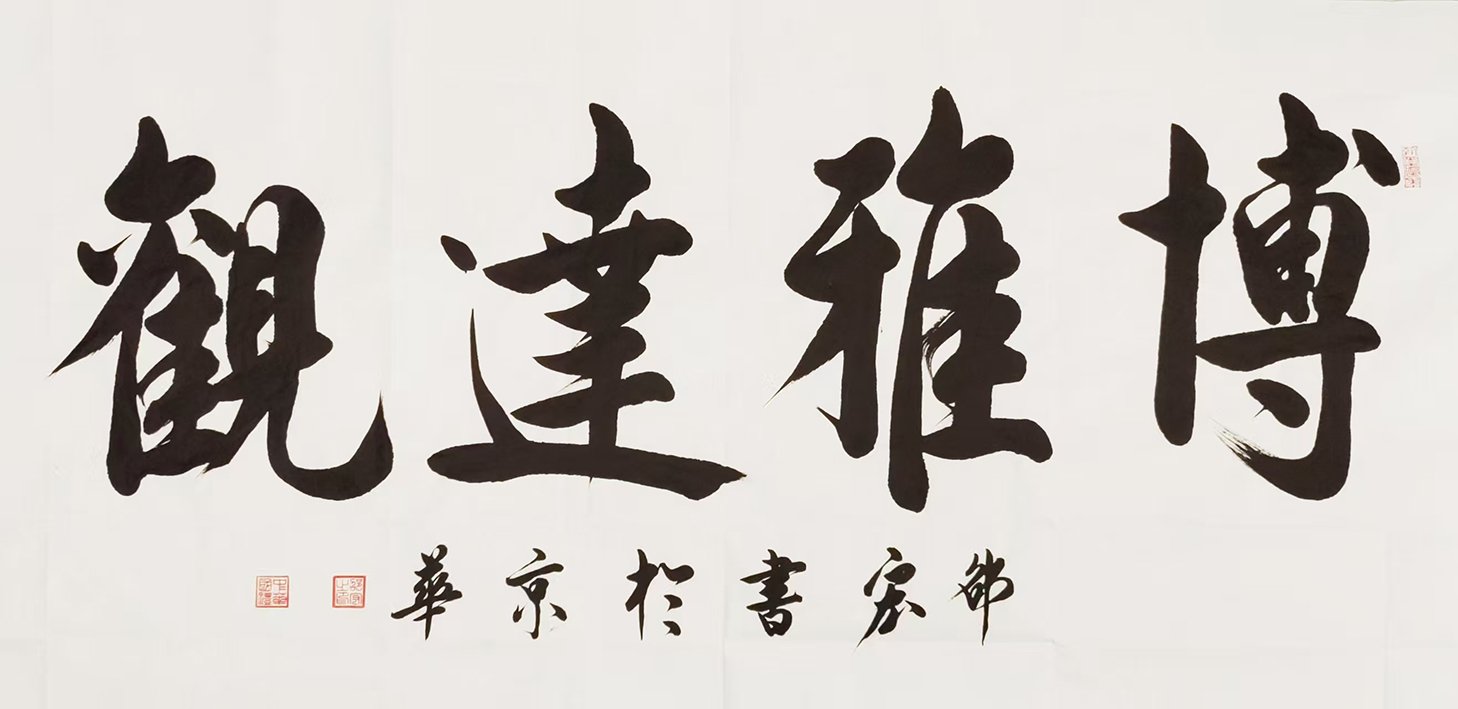 博雅達觀
邹宏書於京華